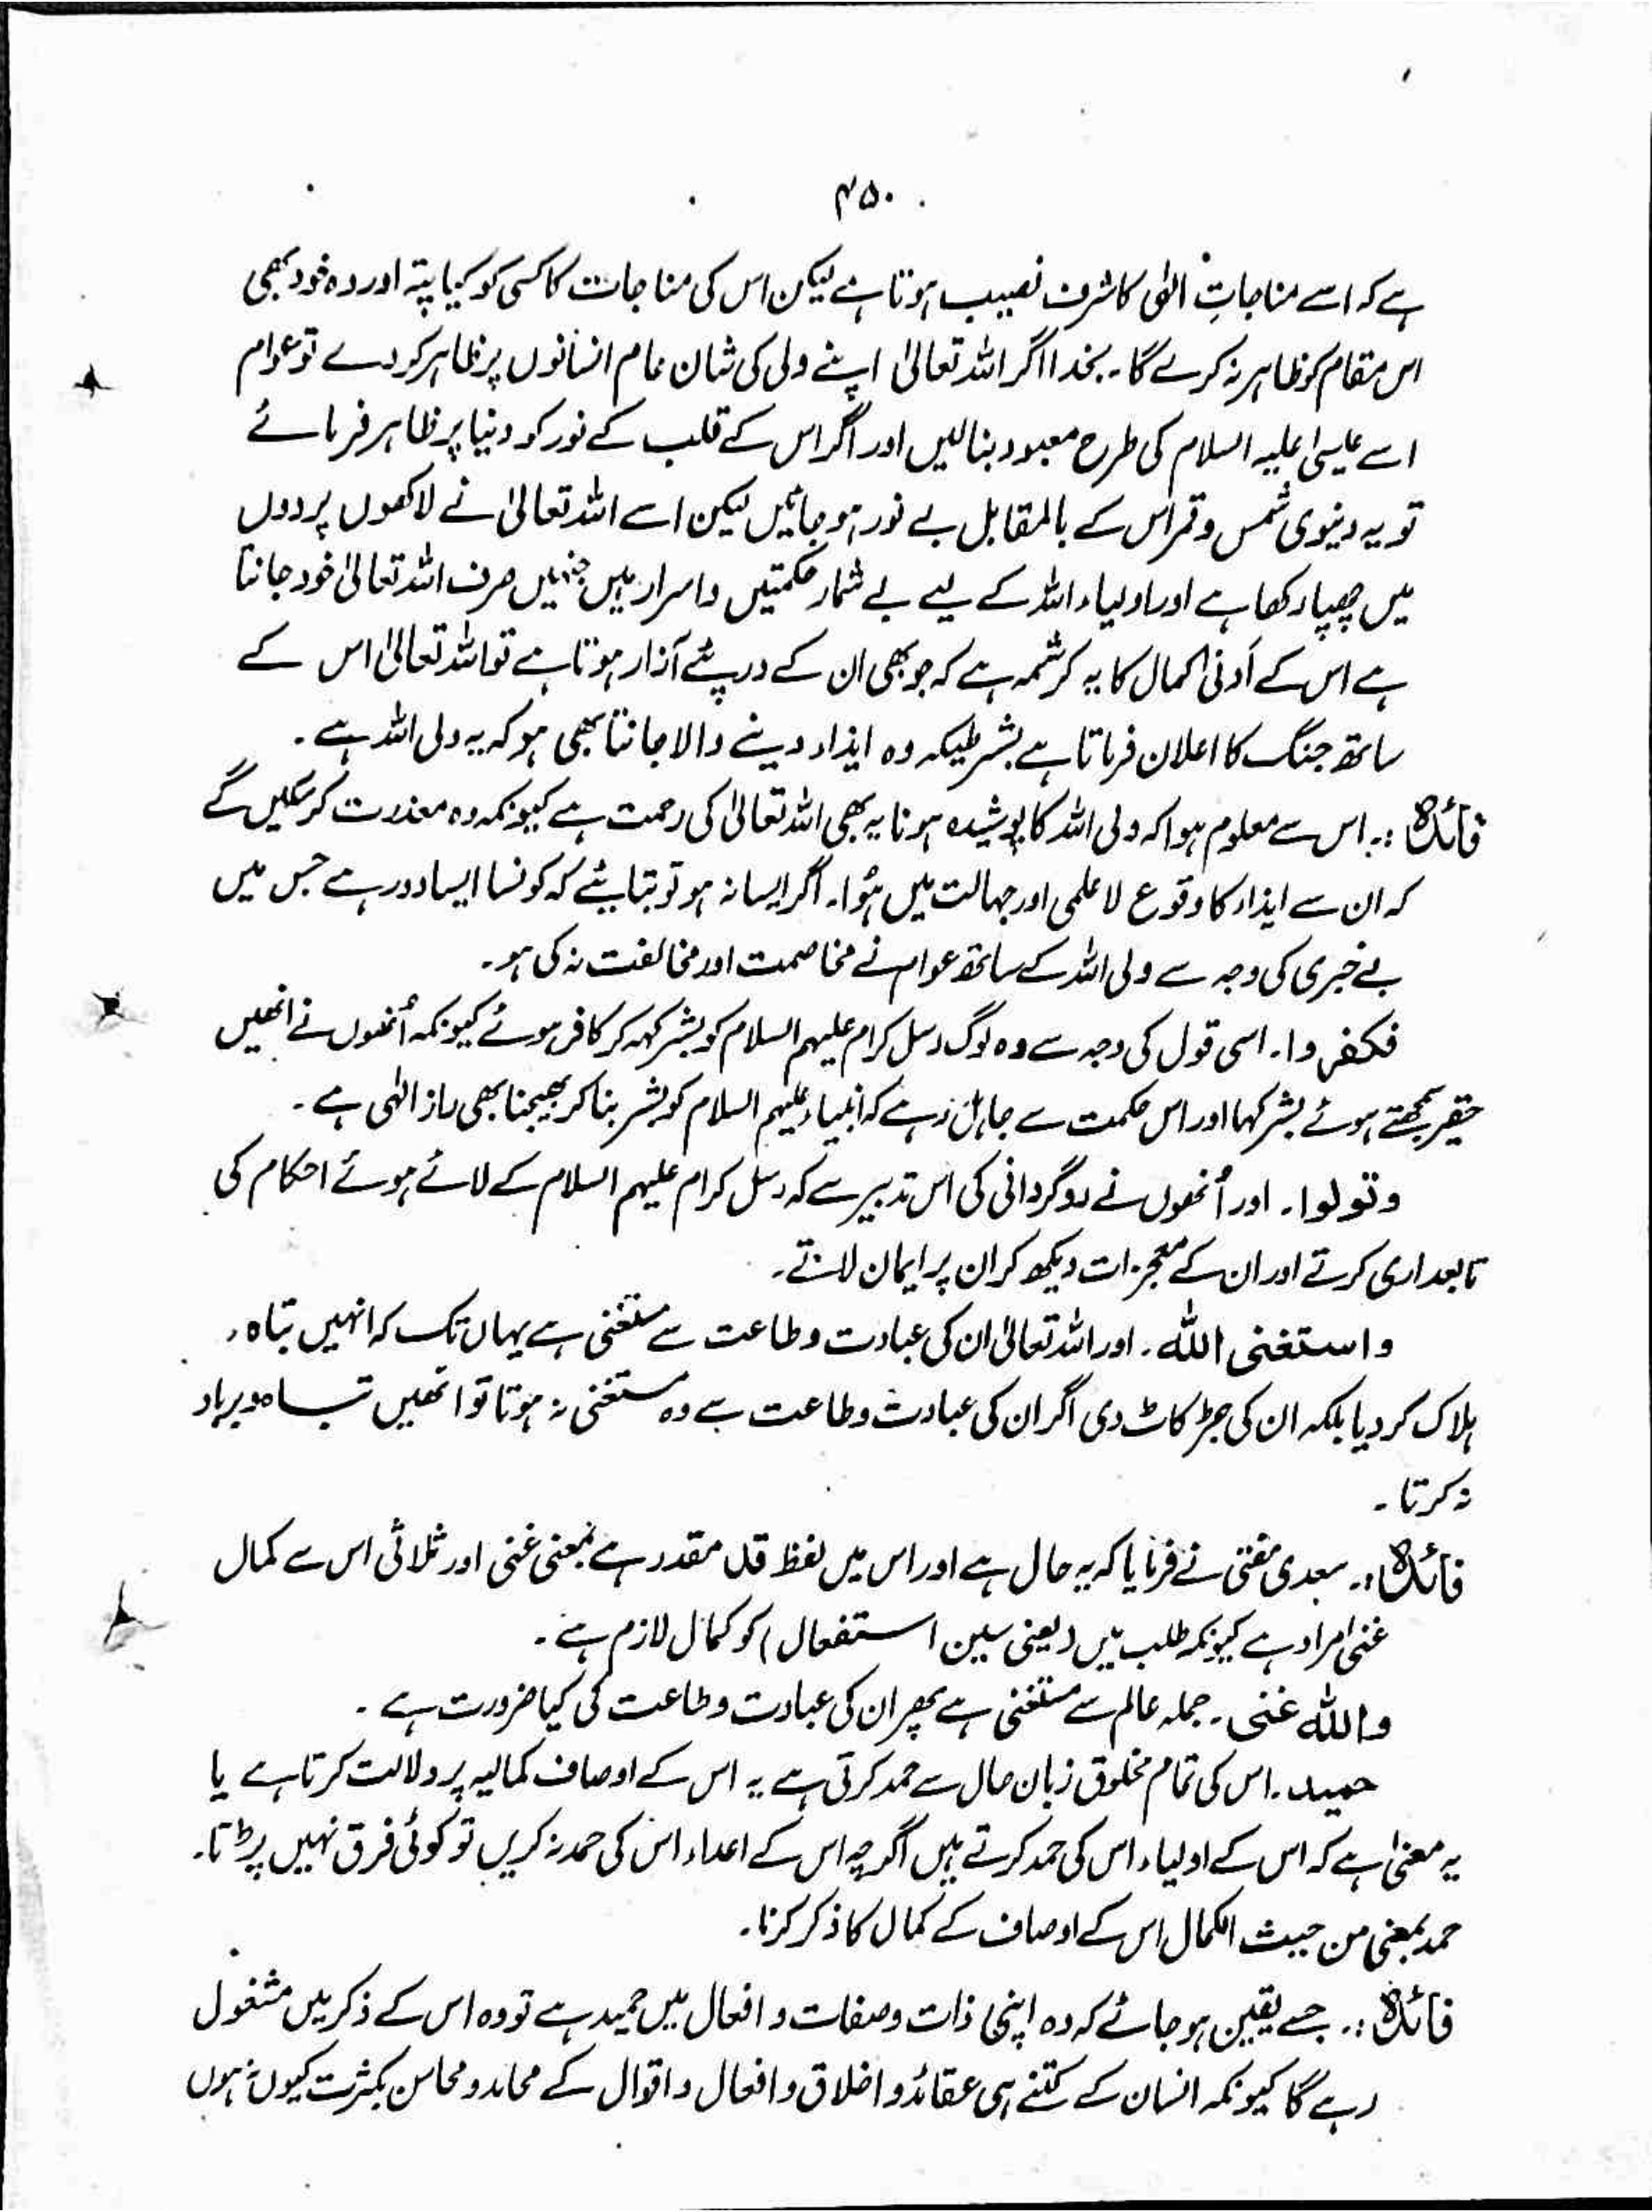 ۴۵۰
ہے کہ اسے مناجاتِ الٰہی کا شرف نصیب ہوتا ہے لیکن اس کی مناجات کا کسی کو کیا پتہ اور وہ خود بھی
اس مقام کو ظاہر نہ کرے گا۔ بخدا اگر اللہ تعالیٰ اپنے ولی کی شان عام انسانوں پر ظاہر کر دے تو عوام
اسے عیسیٰ علیہ السلام کی طرح معبود بنا لیں اور اگر اس کے قلب کے نور کو دنیا پر ظاہر فرمائے
تو یہ دنیوی شمس و قمر اس کے بالمقابل بے نور ہو جائیں لیکن اسے اللہ تعالیٰ نے لاکھوں پردوں
میں چھپا رکھا ہے اور اولیاء اللہ کے لیے بے شمار حکمتیں و اسرار ہیں جنہیں صرف اللہ تعالیٰ خود جانتا
ہے اس کے اَدنیٰ کمال کا یہ کرشمہ ہے کہ جو بھی ان کے درپئے آزار ہوتا ہے تو اللہ تعالیٰ اس کے
ساتھ جنگ کا اعلان فرماتا ہے بشرطیکہ وہ ایذاء دینے والا جانتا بھی ہو کہ یہ ولی اللہ ہے۔
فائدہ :۔ اس سے معلوم ہوا کہ ولی اللہ کا پوشیدہ ہونا یہ بھی اللہ تعالیٰ کی رحمت ہے کیونکہ وہ معذرت کر سکیں گے
کہ ان سے ایذاء کا وقوع لاعلمی اور جہالت میں ہُوا۔ اگر ایسا نہ ہو تو بتائیے کہ کونسا ایسا دور ہے جس میں
بے خبری کی وجہ سے ولی اللہ کے ساتھ عوام نے مخاصمت اور مخالفت نہ کی ہو۔
فکفروا۔ اسی قول کی وجہ سے وہ لوگ رسل کرام علیہم السلام کو بشر کہہ کر کافر ہوئے کیونکہ اُنھوں نے انھیں
حقیر سمجھتے ہوئے بشر کہا اور اس حکمت سے جاہل رہے کہ انبیاء علیہم السلام کو بشر بنا کر بھیجنا بھی راز الٰہی ہے۔
وتولوا۔ اور اُنھوں نے روگردانی کی اس تدبیر سے کہ رسل کرام علیہم السلام کے لائے ہوئے احکام کی
تابعداری کرتے اور ان کے معجزات دیکھ کر ان پر ایمان لاتے۔
واستغنی اللہ۔ اور اللہ تعالیٰ ان کی عبادت و طاعت سے مستغنی ہے یہاں تک کہ انہیں تباہ،
ہلاک کر دیا بلکہ ان کی جڑ کاٹ دی اگر ان کی عبادت و طاعت سے وہ مستغنی نہ ہوتا تو انھیں تباہ و برباد
نہ کرتا۔
فائدہ :۔ سعدی مفتی نے فرمایا کہ یہ حال ہے اور اس میں لفظ قد مقدر ہے بمعنی غنی اور ثلاثی اس سے کمال
غنی مراد ہے کیونکہ طلب میں (یعنی سین استفعال) کو کمال لازم ہے۔
واللہ غنی۔ جملہ عالم سے مستغنی ہے پھر ان کی عبادت و طاعت کی کیا ضرورت ہے۔
حمید۔ اس کی تمام مخلوق زبان حال سے حمد کرتی ہے یہ اس کے اوصاف کمالیہ پر دلالت کرتا ہے یا
یہ معنیٰ ہے کہ اس کے اولیاء اس کی حمد کرتے ہیں اگرچہ اس کے اعداء اس کی حمد نہ کریں تو کوئی فرق نہیں پڑتا۔
حمد بمعنی من حیث الکمال اس کے اوصاف کے کمال کا ذکر کرنا۔
فائدہ :۔ جسے یقین ہو جائے کہ وہ اپنی ذات و صفات و افعال میں حمید ہے تو وہ اس کے ذکر میں مشغول
رہے گا کیونکہ انسان کے کتنے ہی عقائد و اخلاق و افعال و اقوال کے محامد و محاسن بکثرت کیوں نہ ہوں